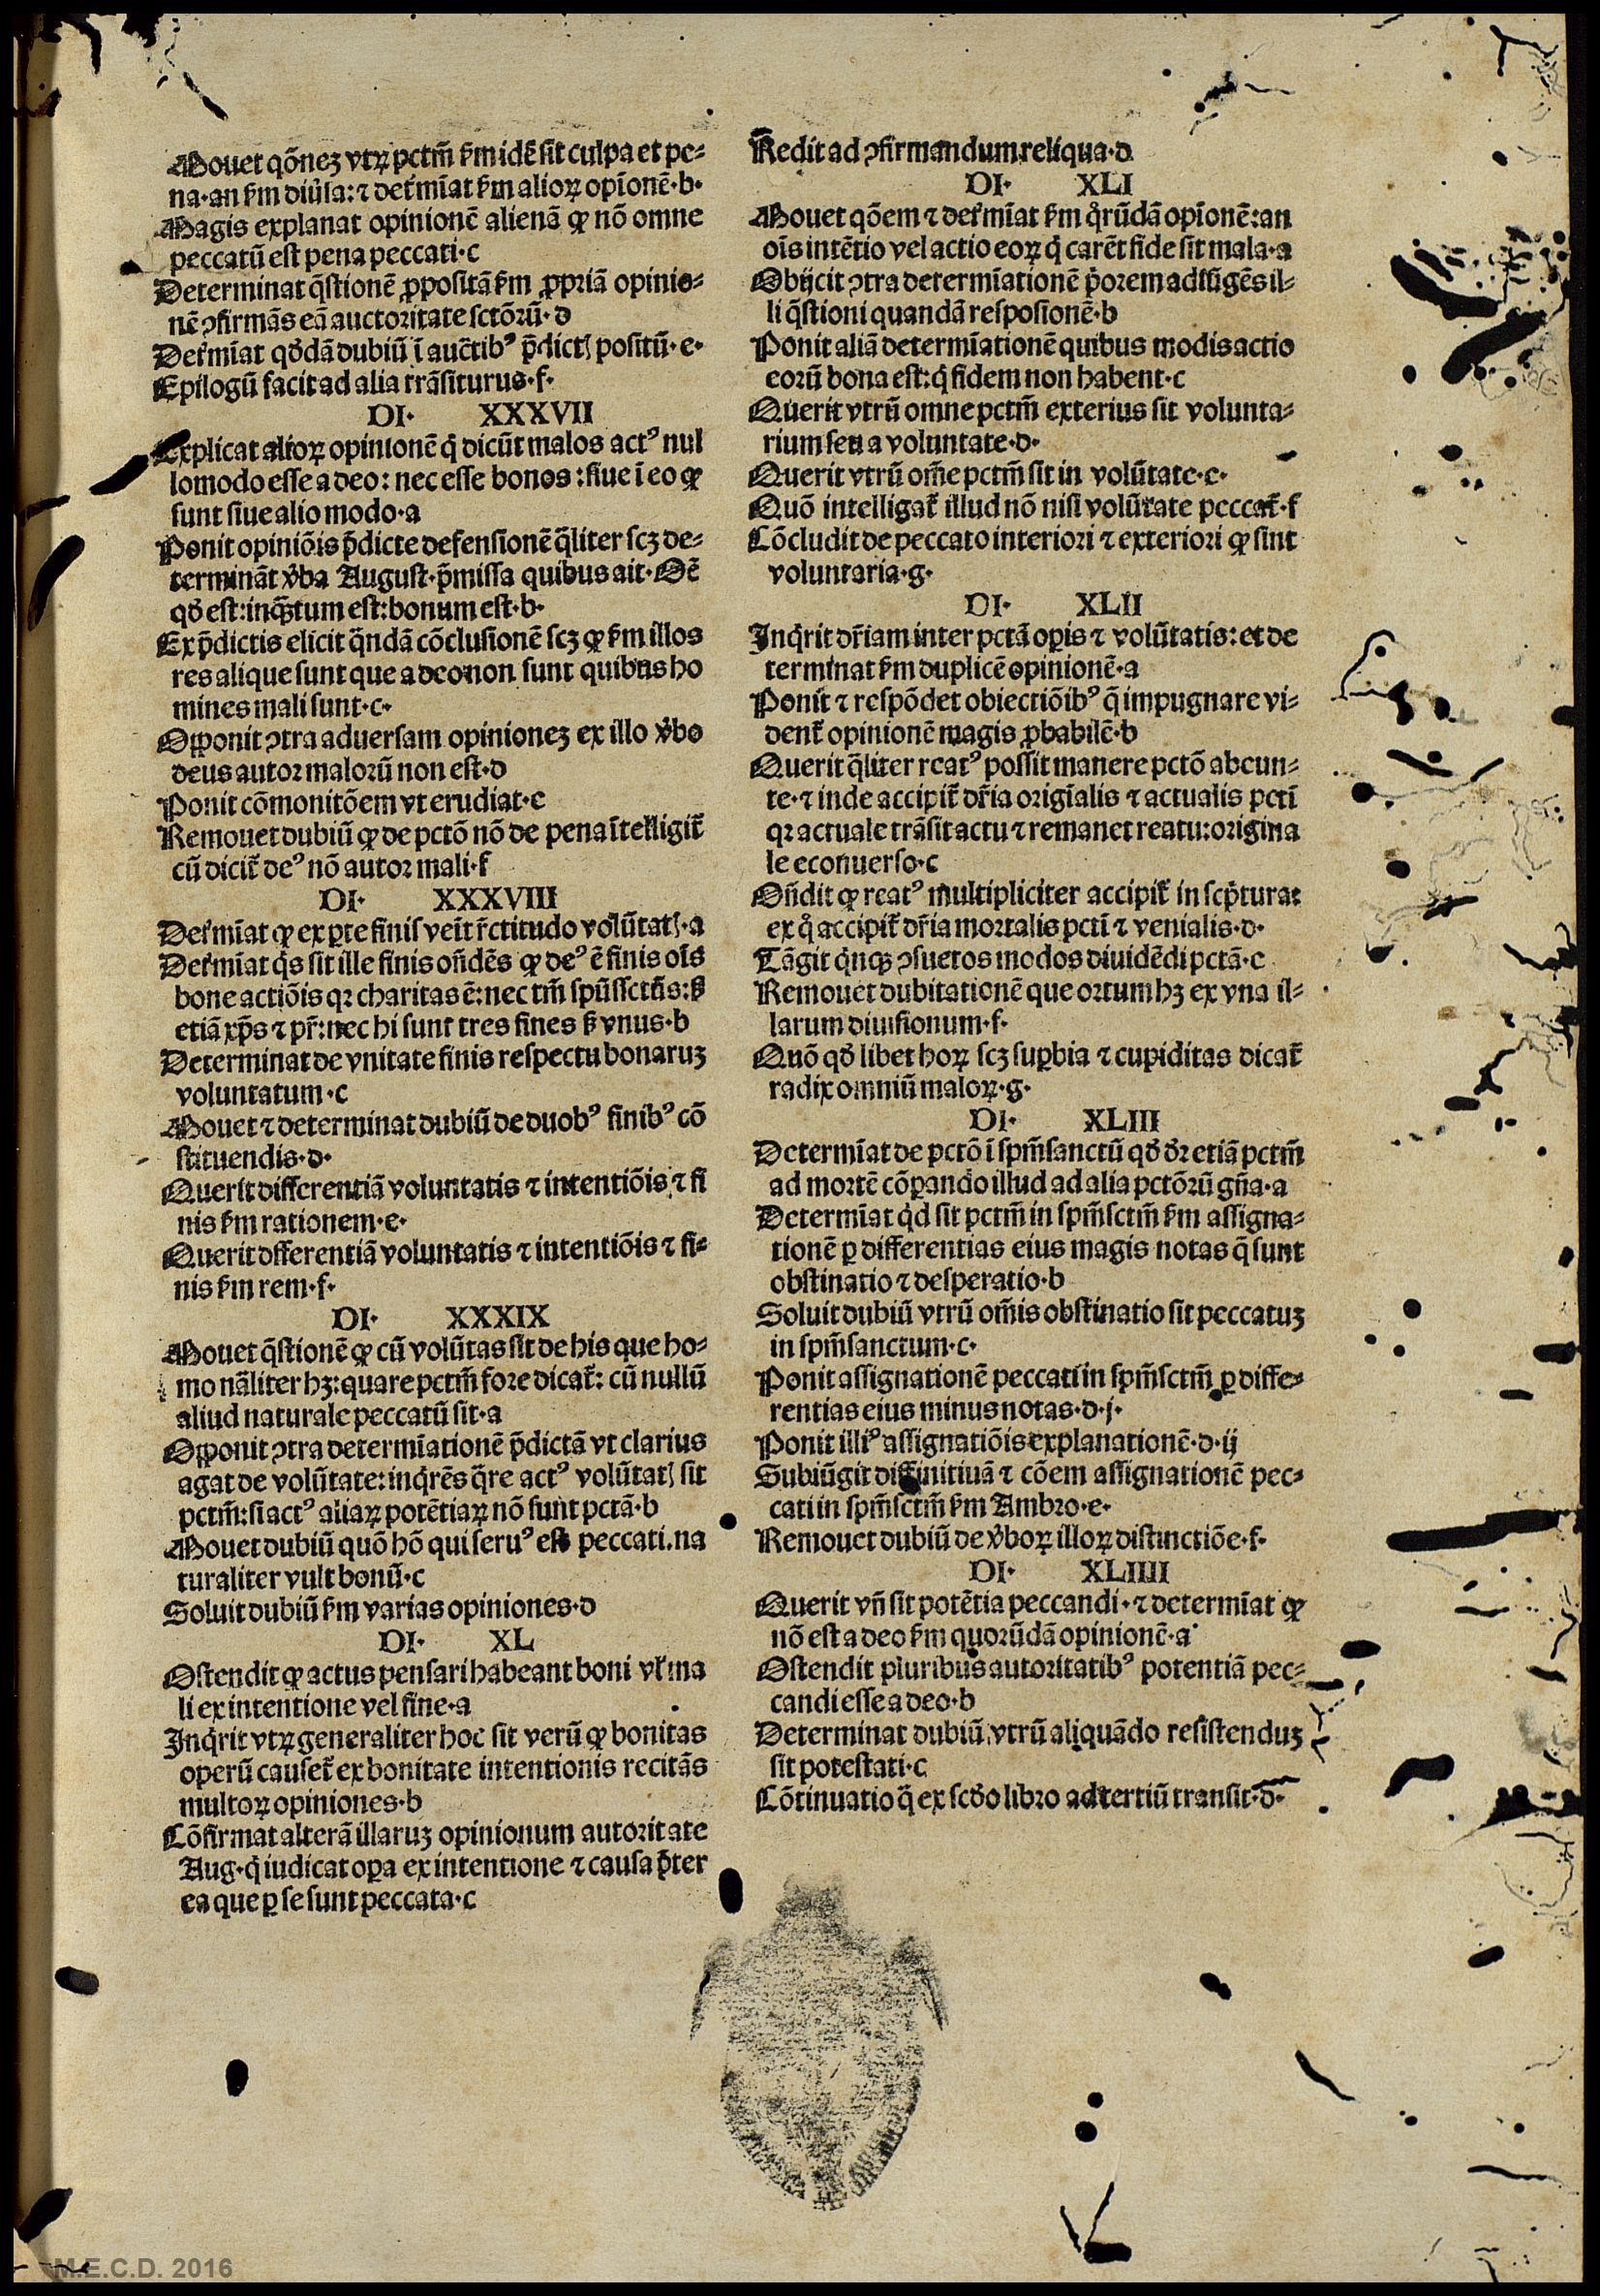 Mouet qōnez vtrꝝ pctm̄ ẜm idē sit culpa et pe-
na·an ẜm diũsa: ⁊ det̃mīat ẜm alioꝝ opīonē·b·
Magis explanat opinionē alienā ꝙ nō omne
peccatū est pena peccati·c
Determinat q̄stionē ꝓpositā ẜm ꝓpriā opinio-
nē ꝯfirmās eā auctoritate sctōrū·d
Det̃mīat qd̓dā dubiū ī auc̄tibꝰ p̄dictꝭ positū·e·
Epilogū facit ad alia trāsiturus·f·
DI· XXXVII
Explicat alioꝝ opinionē q̇ dicūt malos actꝰ nul
lomodo esse a deo: nec esse bonos: siue ī eo ꝙ
sunt siue alio modo·a
Ponit opiniōis p̄dicte defensionē q̄liter scꝫ de-
termināt v̓ba August·p̄missa quibus ait·Oē
qd̓ est:inqꝫtum est:bonum est·b·
Ex p̄dictis elicit q̄ndā cōclusionē scꝫ ꝙ ẜm illos
res alique sunt que a deo non sunt quibus ho
mines mali sunt·c·
Opponit ꝯtra aduersam opinionez ex illo v̓bo
deus autor malorū non est·d
Ponit cōmonitōem vt erudiat·e
Remouet dubiū ꝙ de pctō nō de pena ītelligit̃
cū dicit̃ deꝰ nō autor mali·f
DI· XXXVIII
Det̃mīat ꝙ ex ꝑte finis veīt r̄ctitudo volūtatꝭ·a
Det̃mīat q̇s sit ille finis on̄dēs ꝙ deꝰ ē finis oīs
bone actiōis qꝛ charitas ē:nec tm̄ spūssctūs:ẜ
etiā xp̄s ⁊ pr̄:nec hi sunt tres fines ẜ vnus·b
Determinat de vnitate finis respectu bonaruz
voluntatum·c
Mouet ⁊ determinat dubiū de duobꝰ finibꝰ cō
stituendis·d·
Querit differentiā voluntatis ⁊ intentiōis ⁊ fi
nis ẜm rationem·e·
Querit dfferentiā voluntatis ⁊ intentiōis ⁊ fi-
nis ẜm rem·f·
DI· XXXIX
Mouet q̄stionē ꝙ cū volūtas sit de his que ho-
mo nāliter hꝫ:quare pctm̄ fore dicat̃: cū nullū
aliud naturale peccatū sit·a
Opponit ꝯtra determīationē p̄dictā vt clarius
agat de volūtate:inq̇rēs q̄re actꝰ volūtatꝭ sit
pctm̄:si actꝰ aliaꝝ potētiaꝝ nō sunt pctā·b
Mouet dubiū quō hō qui seruꝰ est peccati.na
turaliter vult bonū·c
Soluit dubiū ẜm varias opiniones·d
DI· XL
Ostendit ꝙ actus pensari habeant boni vł ma
li ex intentione vel fine·a
Inq̇rit vtrꝝ generaliter hoc sit verū ꝙ bonitas
operū causet̃ ex bonitate intentionis recitās
multoꝝ opiniones·b
Cōfirmat alterā illaruz opinionum autoritate
Aug·q̇ iudicat oꝑa ex intentione ⁊ causa p̄ter
ea que ꝑ se sunt peccata·c
Redit ad ꝯfirmandum reliqua·d
DI· XLI
Mouet qōem ⁊ det̃mīat ẜm q̊rūdā opīonē:an
oīs intētio vel actio eoꝝ q̇ carēt fide sit mala·a
Obijcit ꝯtra determīationē p̓orem adiūgēs il-
li q̄stioni quandā resposionē·b
Ponit aliā determīationē quibus modis actio
eorū bona est:q̇ fidem non habent·c
Querit vtrū omne pctm̄ exterius sit volunta-
rium seu a voluntate·d·
Querit vtrū om̄e pctm̄ sit in volūtate·e·
Quō intelligat̃ illud nō nisi volūtate peccat̃·f
Cōcludit de peccato interiori ⁊ exteriori ꝙ sint
voluntaria·g·
DI· XLII
Inq̇rit dr̄iam inter pctā oꝑis ⁊ volūtatis:et de
terminat ẜm duplicē opinionē·a
Ponit ⁊ respōdet obiectiōibꝰ q̄ impugnare vi-
dent̃ opinionē magis ꝓbabilē·b
Querit q̄liter reatꝰ possit manere pctō abeun-
te·⁊ inde accipit̃ dr̄ia origīalis ⁊ actualis pcti
qꝛ actuale trāsit actu ⁊ remanet reatu:origina
le econuerso·c
On̄dit ꝙ reatꝰ multipliciter accipit̃ in scp̓turat
ex q̊ accipit̃ dr̄ia mortalis pcti ⁊ venialis·d·
Tāgit q̇nqꝫ ꝯsuetos modos diuidēdi pctā·e
Remouet dubitationē que ortum hꝫ ex vna il-
larum diuisionum·f·
Quō qd̓ libet hoꝝ scꝫ suꝑbia ⁊ cupiditas dicat̃
radix omniū maloꝝ·g·
DI· XLIII
Determīat de pctō ī spm̄sanctū qd̓ dꝛ etiā pctm̄
ad mortē cōꝑando illud ad alia pctōrū gn̄a·a
Determīat q̇d sit pctm̄ in spm̄sctm̄ ẜm assigna-
tionē ꝑ differentias eius magis notas q̄ sunt
obstinatio ⁊ desperatio·b
Soluit dubiū vtrū om̄is obstinatio sit peccatuz
in spm̄sanctum·c·
Ponit assignationē peccati in spm̄sctm̄ ꝑ diffe-
rentias eius minus notas·d·j·
Ponit illiꝰ assignatiōis explanationē·d·ij
Subiūgit diffinitiuā ⁊ cōem assignationē pec-
cati in spm̄sctm̄ ẜm Ambro·e·
Remouet dubiū de v̓boꝝ illoꝝ distinctiōe·f·
DI· XLIIII
Querit vn̄ sit potētia peccandi·⁊ determīat ꝙ
nō est a deo ẜm quorūdā opinionē·a
Ostendit pluribus autoritatibꝰ potentiā pec-
candi esse a deo·b
Determinat dubiū vtrū aliquādo resistenduz
sit potestati·c
Cōtinuatio q̄ ex scd̓o libro ad tertiū transit·d·
M.E.C.D. 2016